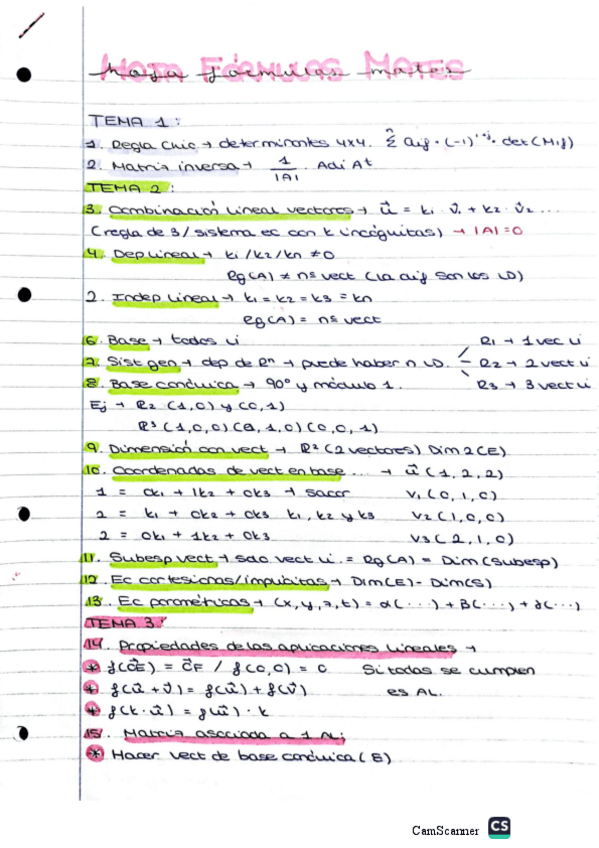 HOJA FÓRMULAS MATES
hoja fórmulas mates
TEMA 1:
1. Regla Chio → determinantes 4x4. Σ aij · (-1)^i+j · det(Mij)
2. Matriz inversa → 1/|A| · Adj A^t
TEMA 2:
3. Combinación lineal vectores → u⃗ = k1 · v⃗1 + k2 · v⃗2 ...
(regla de 3 / sistema ec con k incógnitas) → |A|=0
4. Dep lineal → k1/k2/kn ≠0
Rg(A) ≠ nº vect (la aij son los LD)
2. Indep lineal → k1 = k2 = k3 = kn
Rg(A) = nº vect
6. Base → todos li
R1 → 1 vec li
7. Sist gen → dep de R^n → puede haber n LD.
R2 → 2 vect li
8. Base canónica → 90º y módulo 1.
R3 → 3 vect li
Ej → R2 (1,0) y (0,1)
R³ (1,0,0) (0,1,0) (0,0,1)
9. Dimensión con vect → R² (2 vectores) Dim 2(E)
10. Coordenadas de vect en base ... → u⃗ (1,2,2)
1 = 0k1 + 1k2 + 0k3 → sacar V1 (0,1,0)
2 = k1 + 0k2 + 0k3 k1, k2 y k3 V2 (1,0,0)
2 = 0k1 + 1k2 + 0k3 V3 (2,1,0)
11. Subesp vect → solo vect li = Rg(A) = Dim(subesp)
12. Ec cartesianas/implícitas → Dim(E) - Dim(S)
13. Ec paramétricas → (x,y,z,t) = α(···) + β(···) + γ(···)
TEMA 3:
14. Propiedades de las aplicaciones lineales →
* f(0⃗E) = 0⃗F / f(0,0) = 0 Si todas se cumplen
* f(u⃗ + v⃗) = f(u⃗) + f(v⃗) es AL.
* f(k · u⃗) = f(u⃗) · k
15. Matriz asociada a 1 AL:
* Hacer vect de base canónica (B)
CamScanner
CS